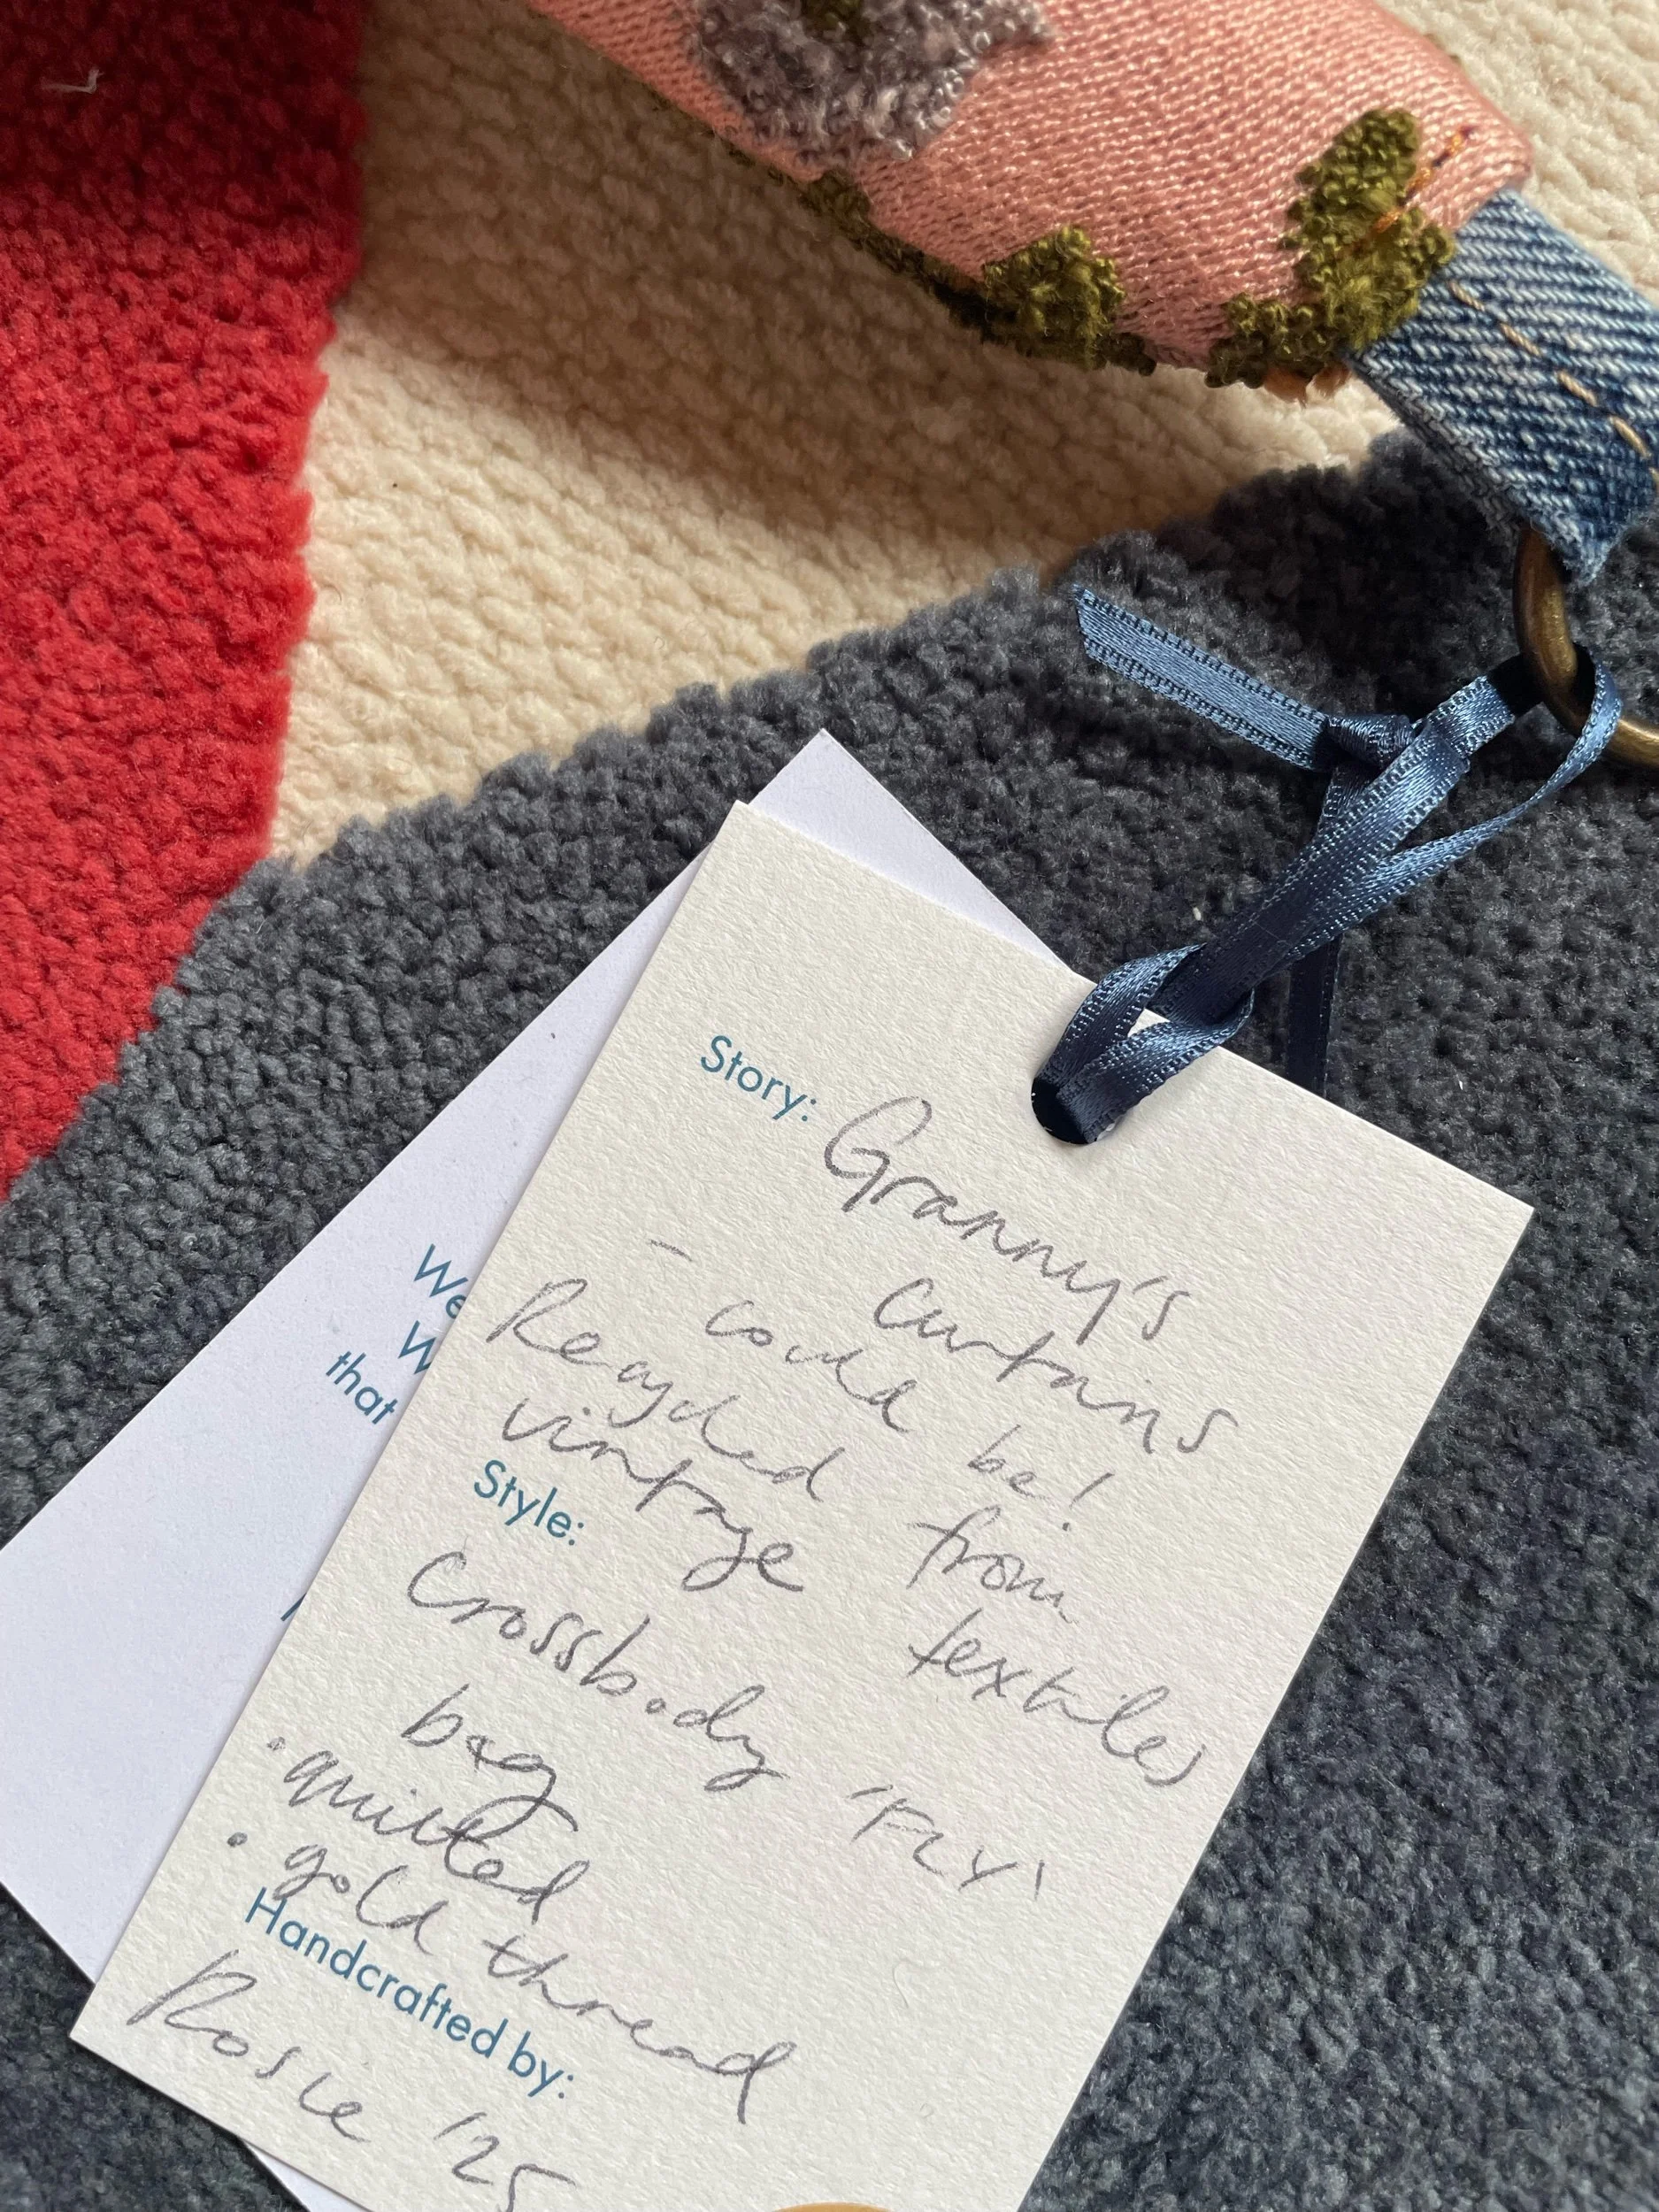 Story: Granny's
curtains
- could be!
Recycled from
vintage textiles
Style:
Crossbody 'FLY'
bag
• quilted
• gold thread
Handcrafted by:
Rosie '25
We
W
that